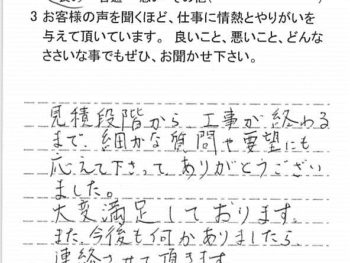 3 お客様の声を聞くほど、仕事に情熱とやりがいを
与えて頂いています。良いこと、悪いこと、どんな
ささいな事でもぜひ、お聞かせ下さい。
見積段階から、工事が終わる
まで、細かな質問や要望にも
応えて下さって、ありがとうござい
ました。
大変満足しております。
また、今後も何かありましたら、
連絡させて頂きます